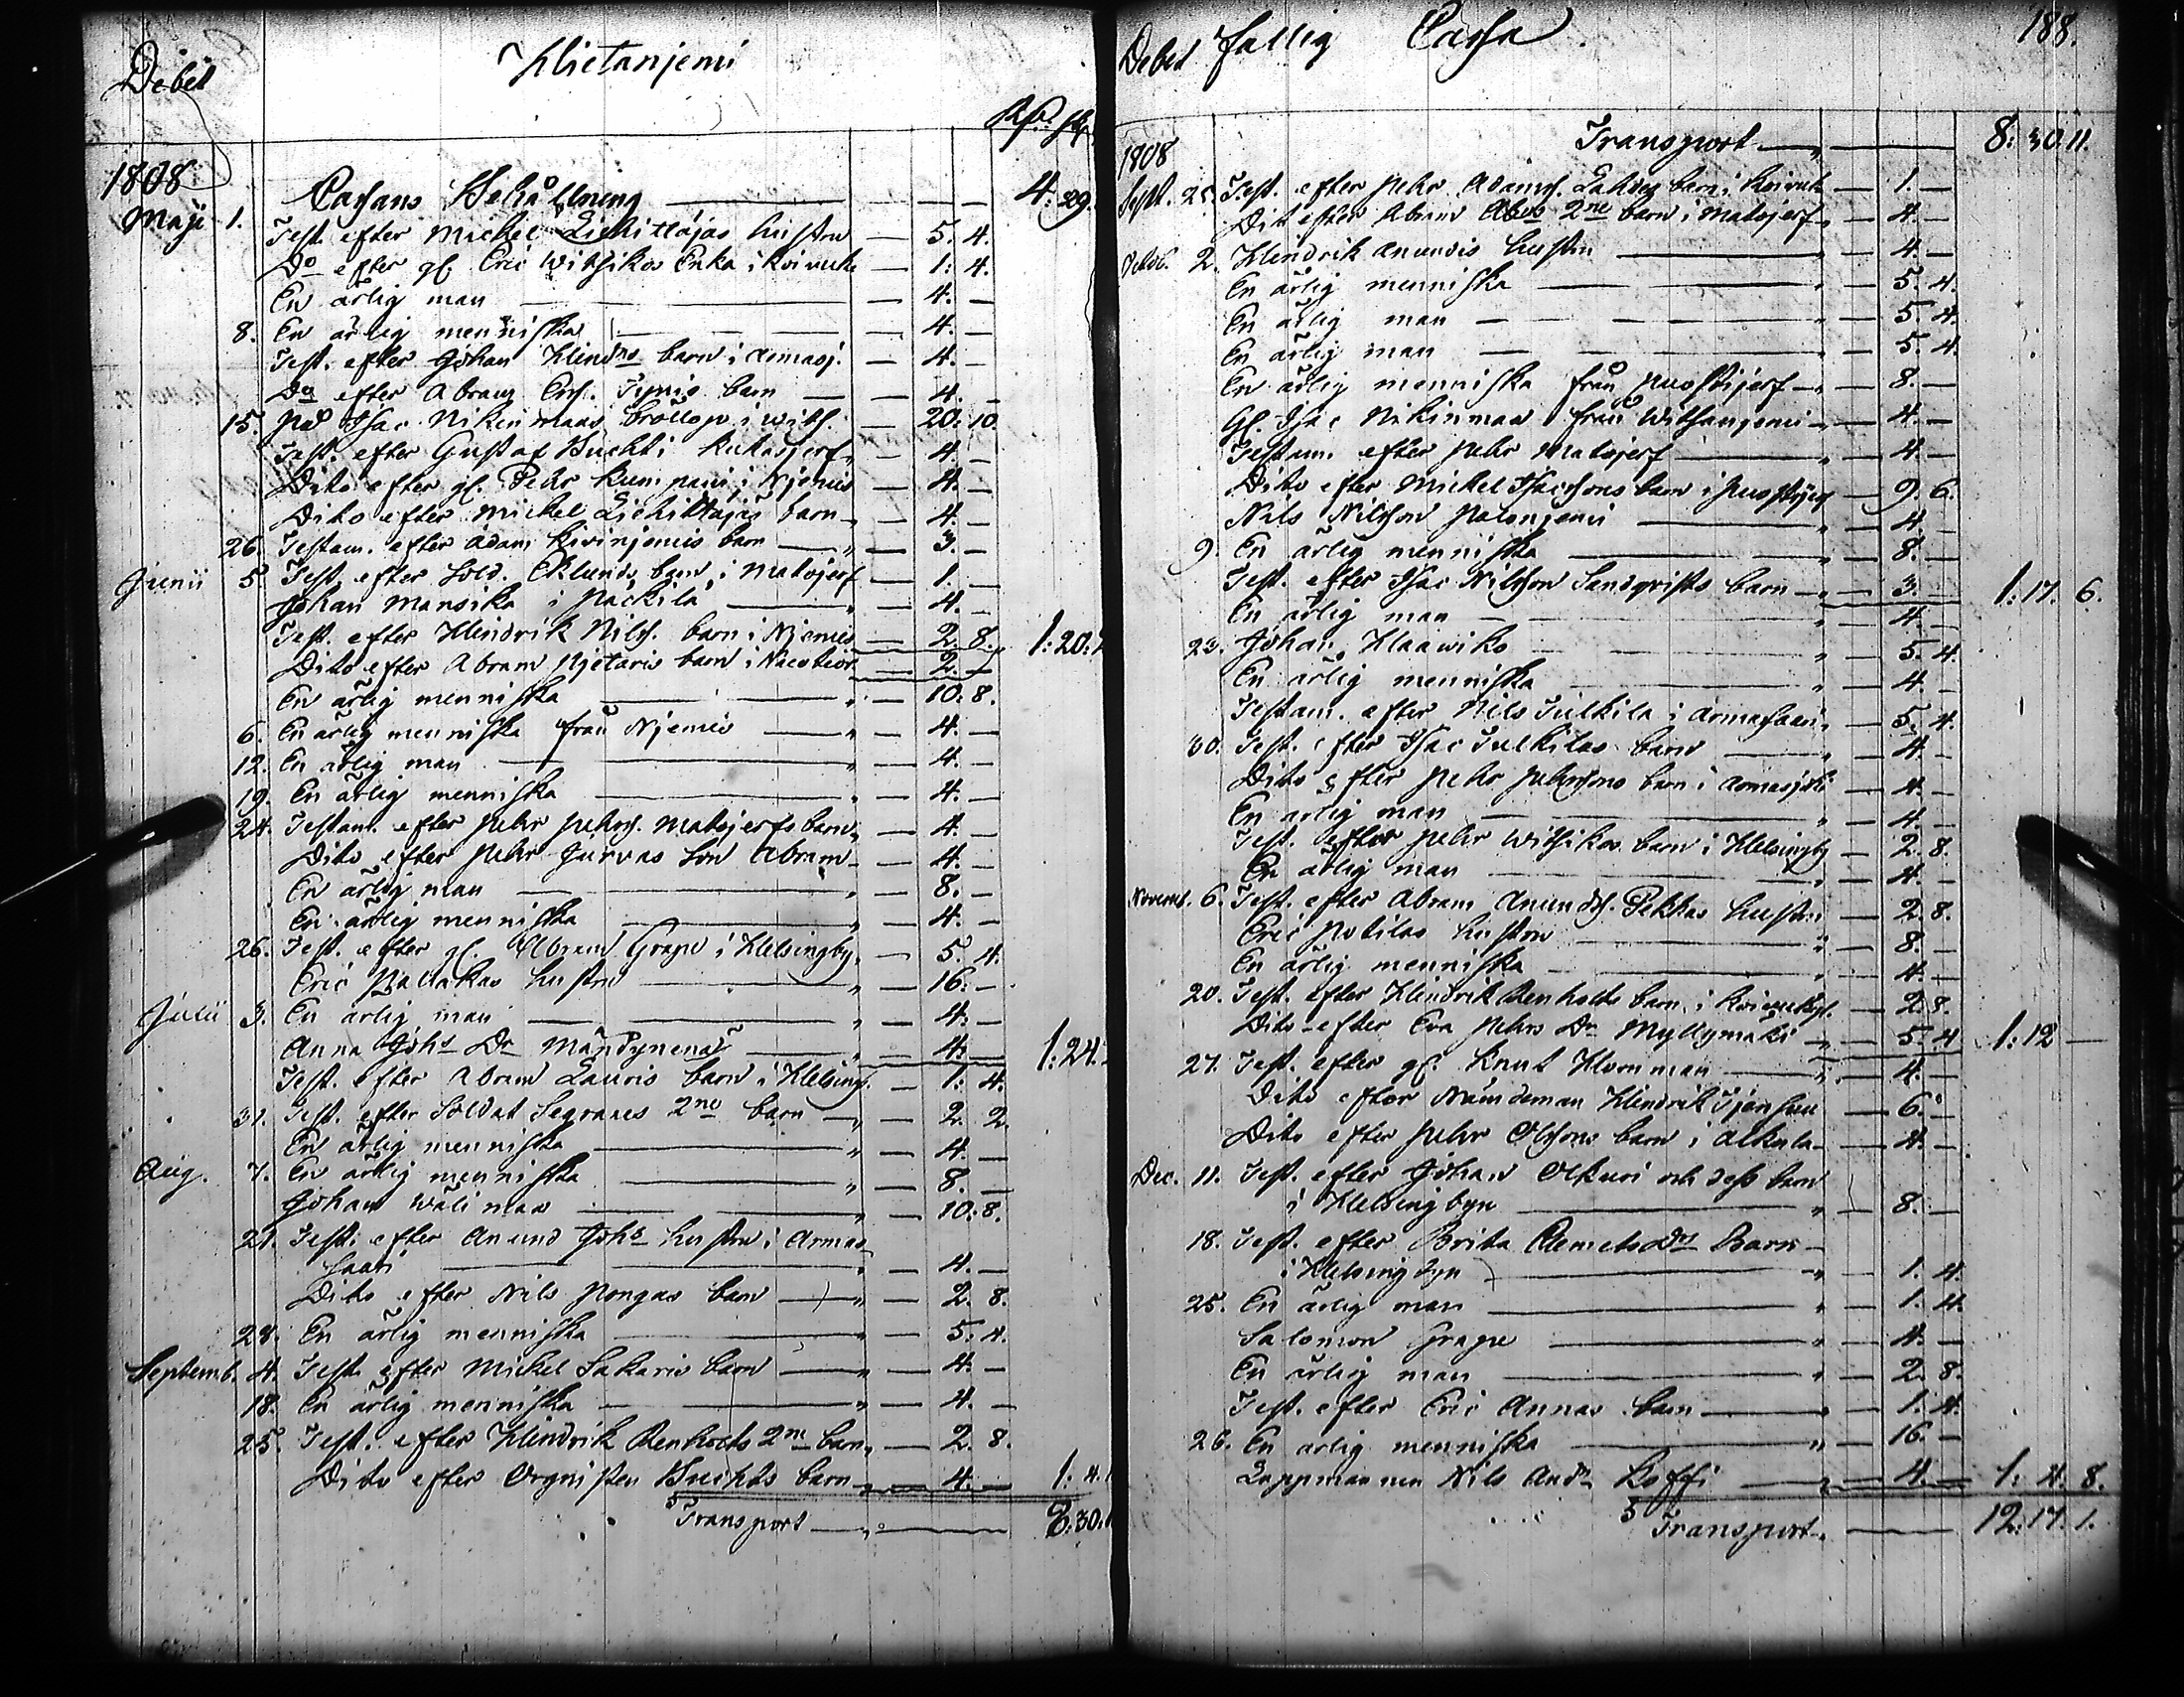 Debet Hietanjemi
Rd. sk
1808
Cassans Behållning — 4: 29.
Maji 1. Test. efter Michel Liehittäjas hustru — 5. 4.
Do efter gl. Eric Witsikos Enka i Koivuk — 1: 4.
En ärlig man — 4. —
8. En ärlig menniska — 4. —
Test. efter Johan Hindrs barn i Armasj. — 4. —
Do efter Abram Ers. Tynis barn — 4. —
15. På Isac Nikinmaas bröllop i Wits. — 20: 10
Test. efter Gustaf Buchti Kukasjerf — 4. —
Dito efter gl. Pehr Kumpain i Njemis — 4. —
Dito efter Mickel Liehittäjäs barn — 4. —
26. Testam. efter Adam Kivinjemis barn — 3. —
Junii 5. Test. efter Sold. Eklunds barn i Matojerf — 1. —
Johan Mansika i Päckilä — 4. —
Test. efter Hindrik Nilss. barn i Njemis — 2. 8. 1: 20:
Dito efter Abram Pjetaris barn i — 2. —
En ärlig menniska — 10: 8.
6. En ärlig menniska från Njemis — 4. —
12. En ärlig man — 4. —
19. En ärlig menniska — 4. —
24. Testam. efter Pehr Pehrs. Matojerfs barn — 4. —
Dito efter Pehr Jurvas son Abram — 4. —
En ärlig man — 8. —
En ärlig menniska — 4. —
26. Test. efter gl. Abram Grape i Helsingby — 5. 4.
Eric Pallakas hustru — 16. —
Julii 3. En ärlig man — 4. —
Anna Johs Dr Mändynenä — 4. — 1: 24.
Test. efter Abram Lauris barn i Helsing. — 1: 4.
31. Test. efter Soldat Segranes 2ne barn — 2. 2.
En ärlig menniska — 4. —
Aug. 7. En ärlig menniska — 8. —
Johan Wälimaa — 10: 8.
21. Test. efter Anund Johs hustru i Armas
saari — 4. —
Dito efter Nils Pongas barn — 2. 8.
28. En ärlig menniska — 5. 4.
Septemb. 4. Test. efter Mickel Sakaris barn — 4. —
18. En ärlig menniska — 4. —
25. Test. efter Hindrik Renholts 2ne barn — 2. 8.
Dito efter Orgnisten Buchts barn — 4. — 1: 4.
Transport — 8: 30.
Debet fattig Cassa 188.
1808
Transport — 8: 30. 11.
Sept. 25. Test. efter Pehr Adamss. barn i Koivuk — 1. —
Dito efter Abram Abos 2ne barn i Matojerf — 4. —
Octob. 2. Hindrik Anundis hustru — 4. —
En ärlig menniska — 5. 4.
En ärlig man — 5. 4.
En ärlig man — 5. 4.
En ärlig menniska från Puostijerf — 8. —
Gl. Isac Nikinmaa från Witsanjemi — 4. —
Testam. efter Pehr Matojerf — 4. —
Dito efter Mickel Isacssons barn i Puostijerf — 9. 6.
Nils Nilsson Palonjemi — 4. —
9. En ärlig menniska — 8. —
Test. efter Isac Nilsson Sandqvists barn — 3. — 1: 17. 6.
En ärlig man — 4. —
23. Johan Haawiko — 5. 4.
En ärlig menniska — 4. —
Testam. efter Nils Julkila i Armasaari — 5. 4.
30. Test. efter Isac Julkilas barn — 4. —
Dito efter Pehr Pehrssons barn i Armasjärfi — 4. —
En ärlig man — 4. —
Test. efter Pehr Witsikos barn i Helsingby — 2. 8.
En ärlig man — 4. —
Novemb. 6. Test. efter Abram Anundss. Pekkas hustru — 2. 8.
Eric Potilas hustru — 8. —
En ärlig menniska — 4. —
20. Test. efter Hindrik Renholts barn i Koivukyl. — 2. 8.
Dito efter Eva Pehrs Dr Myllymäki — 5. 4 1: 12 —
27. Test. efter gl. Knut Hornman — 4. —
Dito efter Nämdeman Hindrik — 6. —
Dito efter Pehr Olssons barn i Alkula — 4. —
Dec. 11. Test. efter Johan Olkuri och dess barn
i Helsingbyn — 8. —
18. Test. efter Brita Clemets Drs Barn —
i Helsingbyn — 1. 4.
25. En ärlig man — 1. 4.
Salomon Grape — 4. —
En ärlig man — 2. 8.
Test. efter Eric Annas barn — 1. 4.
26. En ärlig menniska — 16. —
Lappmannen Nils Ands Koffi — 4. — 1: 4. 8.
Transport. — 12: 17. 1.